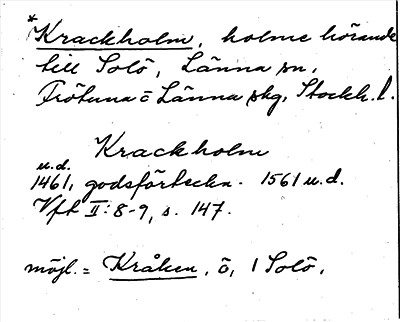 * Krackholm, holme hörande
till Solö, Länna sn,
Frötuna o Länna skg, Stockh. l.
Krackholm
u.d.
1461, godsförteckn. 1561 u.d.
Vft II:8-9, s. 147.
möjl. = Kråken, ö, 1 Solö.